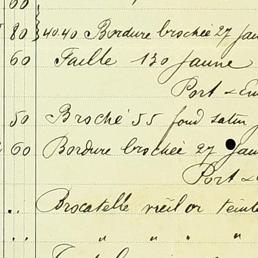 60
80 40.40 Bordure brochée 27 Jau
60 Faille 130 Jaune
Port & Em
50 Broché 55 fond satin
60 Bordure brochée 27 Jau
Port & E
.. Brocatelle vieil or teinte
.. " " " "